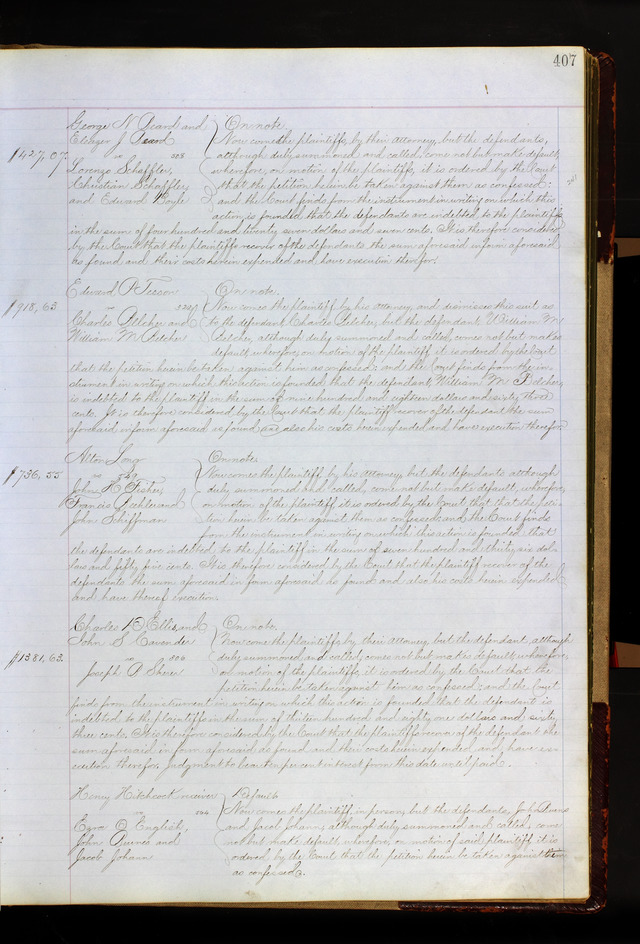 407
George N. Peard and } On note.
Ebenezer J. Peard Now come the plaintiffs, by their attorney, but the defendants,
$427,07. vs 308 although duly summoned and called, come not but make default,
Lorenzo Schaffler, wherefore, on motion of the plaintiffs, it is ordered by the Court
Christian Schaffler that the petition herein be taken against them as confessed:
and Edward Boyle and the Court finds from the instrument in writing on which this
action is founded that the defendants are indebted to the plaintiffs
in the sum of four hundred and twenty seven dollars and seven cents. It is therefore considered
by the Court that the plaintiffs recover of the defendants the sum aforesaid in form aforesaid
as found and their costs herein expended and have execution therefor.
Edward P. Tesson } On note.
$918,63 vs Now comes the plaintiff by his attorney and dismisses this suit as
Charles Pilcher and to the defendant Charles Pilcher, but the defendant William M.
William M. Pilcher Pilcher, although duly summoned and called, comes not but makes
default, wherefore, on motion of the plaintiff it is ordered by the Court
that the petition herein be taken against him as confessed: and the Court finds from the in-
strument in writing on which this action is founded that the defendant, William M. Pilcher,
is indebted to the plaintiff in the sum of nine hundred and eighteen dollars and sixty three
cents. It is therefore considered by the Court that the plaintiff recover of the defendant the sum
aforesaid in form aforesaid as found and also his costs herein expended and have execution therefor
Alton Long } On note.
$736,55 vs Now comes the plaintiff by his attorney, but the defendants although
John H. Fisher, duly summoned and called, come not but make default, wherefore,
Francis and on motion of the plaintiff it is ordered by the Court that that the peti-
John Scheffman tion herein be taken against them as confessed; and the Court finds
from the instrument in writing on which this action is founded that
the defendants are indebted to the plaintiff in the sum of seven hundred and thirty six dol-
lars and fifty five cents. It is therefore considered by the Court that the plaintiff recover of the
defendants the sum aforesaid in form aforesaid as found and also his costs herein expended
and have thereof execution.
Charles B. Ellis and } On note.
John S. Cavender Now come the plaintiffs by their attorney, but the defendant, although
$1381,63. vs 806 duly summoned and called, comes not but makes default, wherefore,
Joseph A. Shever on motion of the plaintiffs it is ordered by the Court that the
petition herein be taken against him as confessed; and the Court
finds from the instrument in writing on which this action is founded that the defendant is
indebted to the plaintiffs in the sum of thirteen hundred and eighty one dollars and sixty
three cents. It is therefore considered by the Court that the plaintiffs recover of the defendant the
sum aforesaid in form aforesaid as found and their costs herein expended, and have ex-
ecution therefor, judgment to bear ten per cent interest from this date until paid.
Henry Hitchcock receiver }
vs Now comes the plaintiff, in person, but the defendants, John Burnes
Ezra O. English, and Jacob Johann, although duly summoned and called, come
John Burnes and not but make default, wherefore, on motion of said plaintiff it is
Jacob Johann ordered by the Court that the petition herein be taken against them
as confessed.